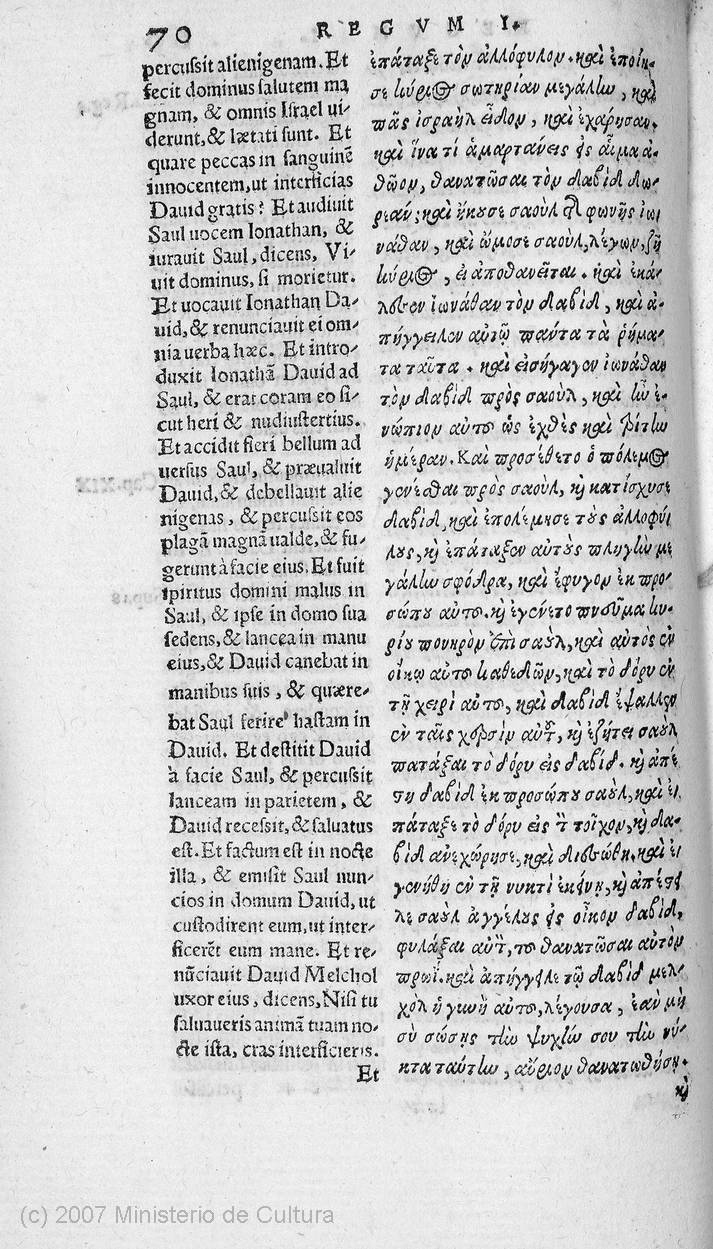 70 REGVM I.
percussit alienigenam. Et
fecit dominus salutem ma
gnam, & omnis Israel ui-
derunt, & lætati sunt. Et
quare peccas in sanguinẽ
innocentem, ut interficias
Dauid gratis? Et audiuit
Saul uocem Ionathan, &
iurauit Saul, dicens, Vi-
uit dominus, si morietur.
Et uocauit Ionathan Da-
uid, & renunciauit ei om-
nia uerba hæc. Et intro-
duxit Ionathã Dauid ad
Saul, & erat coram eo si-
cut heri & nudiustertius.
Et accidit fieri bellum ad
uersus Saul, & præualuit
Dauid, & debellauit alie
nigenas, & percussit eos
plagã magnã ualde, & fu-
gerunt à facie eius. Et fuit
spiritus domini malus in
Saul, & ipse in domo sua
sedens, & lancea in manu
eius, & Dauid canebat in
manibus suis, & quære-
bat Saul ferire hastam in
Dauid. Et destitit Dauid
à facie Saul, & percussit
lanceam in parietem, &
Dauid recessit, & saluatus
est. Et factum est in nocte
illa, & emisit Saul nun-
cios in domum Dauid, ut
custodirent eum, ut inter-
ficerẽt eum mane. Et re-
nũciauit Dauid Melchol
uxor eius, dicens, Nisi tu
saluaueris animã tuam no-
cte ista, cras interficieris.
Et
ἐπάταξε τὸν ἀλλόφυλον. καὶ ἐποίη-
σε κύριος σωτηρίαν μεγάλην, καὶ
πᾶς ἰσραὴλ εἶδον, καὶ ἐχάρησαν.
καὶ ἵνα τί ἁμαρτάνεις εἰς αἷμα ἀ-
θῶον, θανατῶσαι τὸν δαβὶδ δω-
ρεάν; καὶ ἤκουσε σαοὺλ τῆς φωνῆς ἰω
νάθαν, καὶ ὤμοσε σαοὺλ, λέγων, ζῇ
κύριος, εἰ ἀποθανεῖται. καὶ ἐκά-
λεσεν ἰωνάθαν τὸν δαβὶδ, καὶ ἀ-
πήγγειλεν αὐτῷ πάντα τὰ ῥήμα-
τα ταῦτα. καὶ εἰσήγαγεν ἰωνάθαν
τὸν δαβὶδ πρὸς σαοὺλ, καὶ ἦν ἐ-
νώπιον αὐτοῦ ὡς ἐχθὲς καὶ τρίτην
ἡμέραν. Καὶ προσέθετο ὁ πόλεμος
γενέσθαι πρὸς σαοὺλ, καὶ κατίσχυσε
δαβὶδ, καὶ ἐπολέμησε τοὺς ἀλλοφύ
λους, καὶ ἐπάταξεν αὐτοὺς πληγὴν με
γάλην σφόδρα, καὶ ἔφυγον ἐκ προ-
σώπου αὐτοῦ. καὶ ἐγένετο πνεῦμα κυ-
ρίου πονηρὸν ἐπὶ σαοὺλ, καὶ αὐτὸς ἐν
οἴκῳ αὐτοῦ καθεύδων, καὶ τὸ δόρυ ἐν
τῇ χειρὶ αὐτοῦ, καὶ δαβὶδ ἔψαλλεν
ἐν ταῖς χερσὶν αὐτοῦ, καὶ ἐζήτει σαοὺλ
πατάξαι τὸ δόρυ εἰς δαβίδ. καὶ ἀπέ
στη δαβὶδ ἐκ προσώπου σαοὺλ, καὶ ἐ
πάταξε τὸ δόρυ εἰς τὸν τοῖχον, καὶ δα-
βὶδ ἀνεχώρησε, καὶ διεσώθη. καὶ ἐ
γενήθη ἐν τῇ νυκτὶ ἐκείνῃ, καὶ ἀπέστει
λε σαοὺλ ἀγγέλους εἰς οἶκον δαβὶδ,
φυλάξαι αὐτὸν, τοῦ θανατῶσαι αὐτὸν
πρωΐ. καὶ ἀπήγγειλε τῷ δαβὶδ μελ-
χὸλ ἡ γυνὴ αὐτοῦ, λέγουσα, ἐὰν μὴ
σὺ σώσῃς τὴν ψυχήν σου τὴν νύ-
κτα ταύτην, αὔριον θανατωθήσῃ.
καὶ
(c) 2007 Ministerio de Cultura